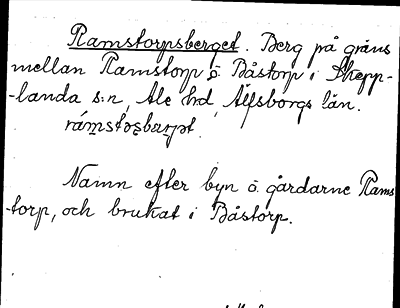 Ramstorpsberget. Berg på gräns
mellan Ramstorp o. Båstorp i Skepp-
-landa s:n, Ale hd, Älfsborgs län.
Namn efter byn o. gårdarne Rams
-torp, och brukat i Båstorp.